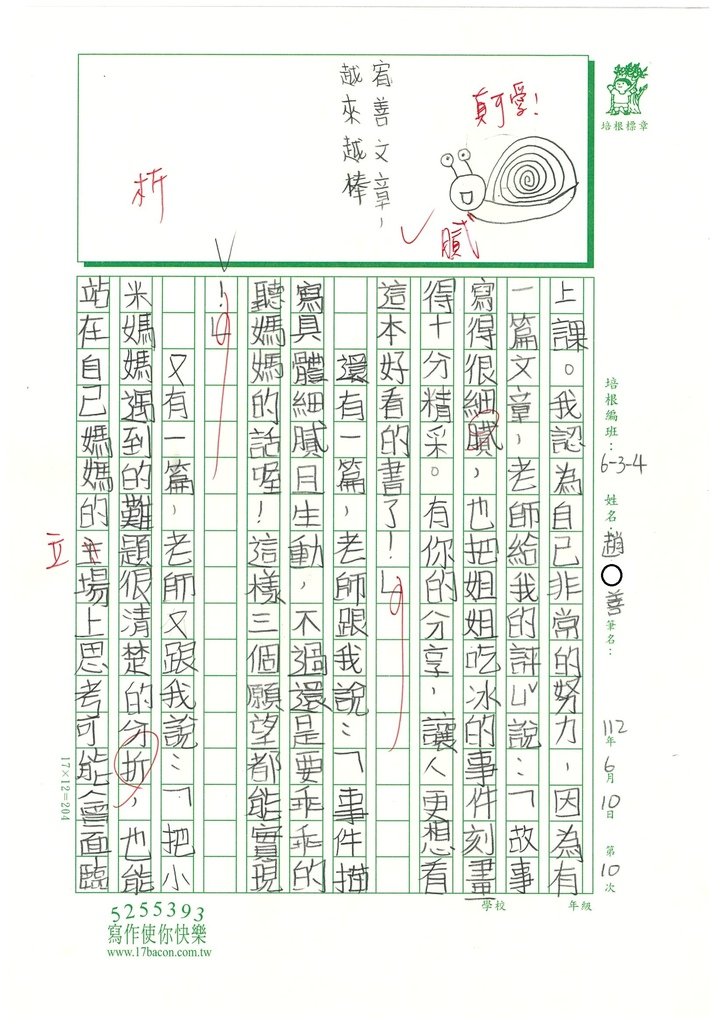 宥善文章，
越來越棒
真可愛！
膩
析
培根標章
培根編班：6-3-4
姓名：趙○善
筆名：
112年6月10日 第10次
學校
年級
上課。我認為自己非常的努力，因為有
一篇文章，老師給我的評心說：「故事
寫得很細膩，也把姐姐吃冰的事件刻畫
得十分精采。有你的分享，讓人更想看
這本好看的書了！」
還有一篇，老師跟我說：「事件描
寫具體細膩且生動，不過還是要乖乖的
聽媽媽的話喔！這樣三個願望都能實現
！」
又有一篇，老師又跟我說：「把小
米媽媽遇到的難題很清楚的分折，也能
站在自己媽媽的場上思考可能會面臨
立
17×12=204
5255393
寫作使你快樂
www.17bacon.com.tw